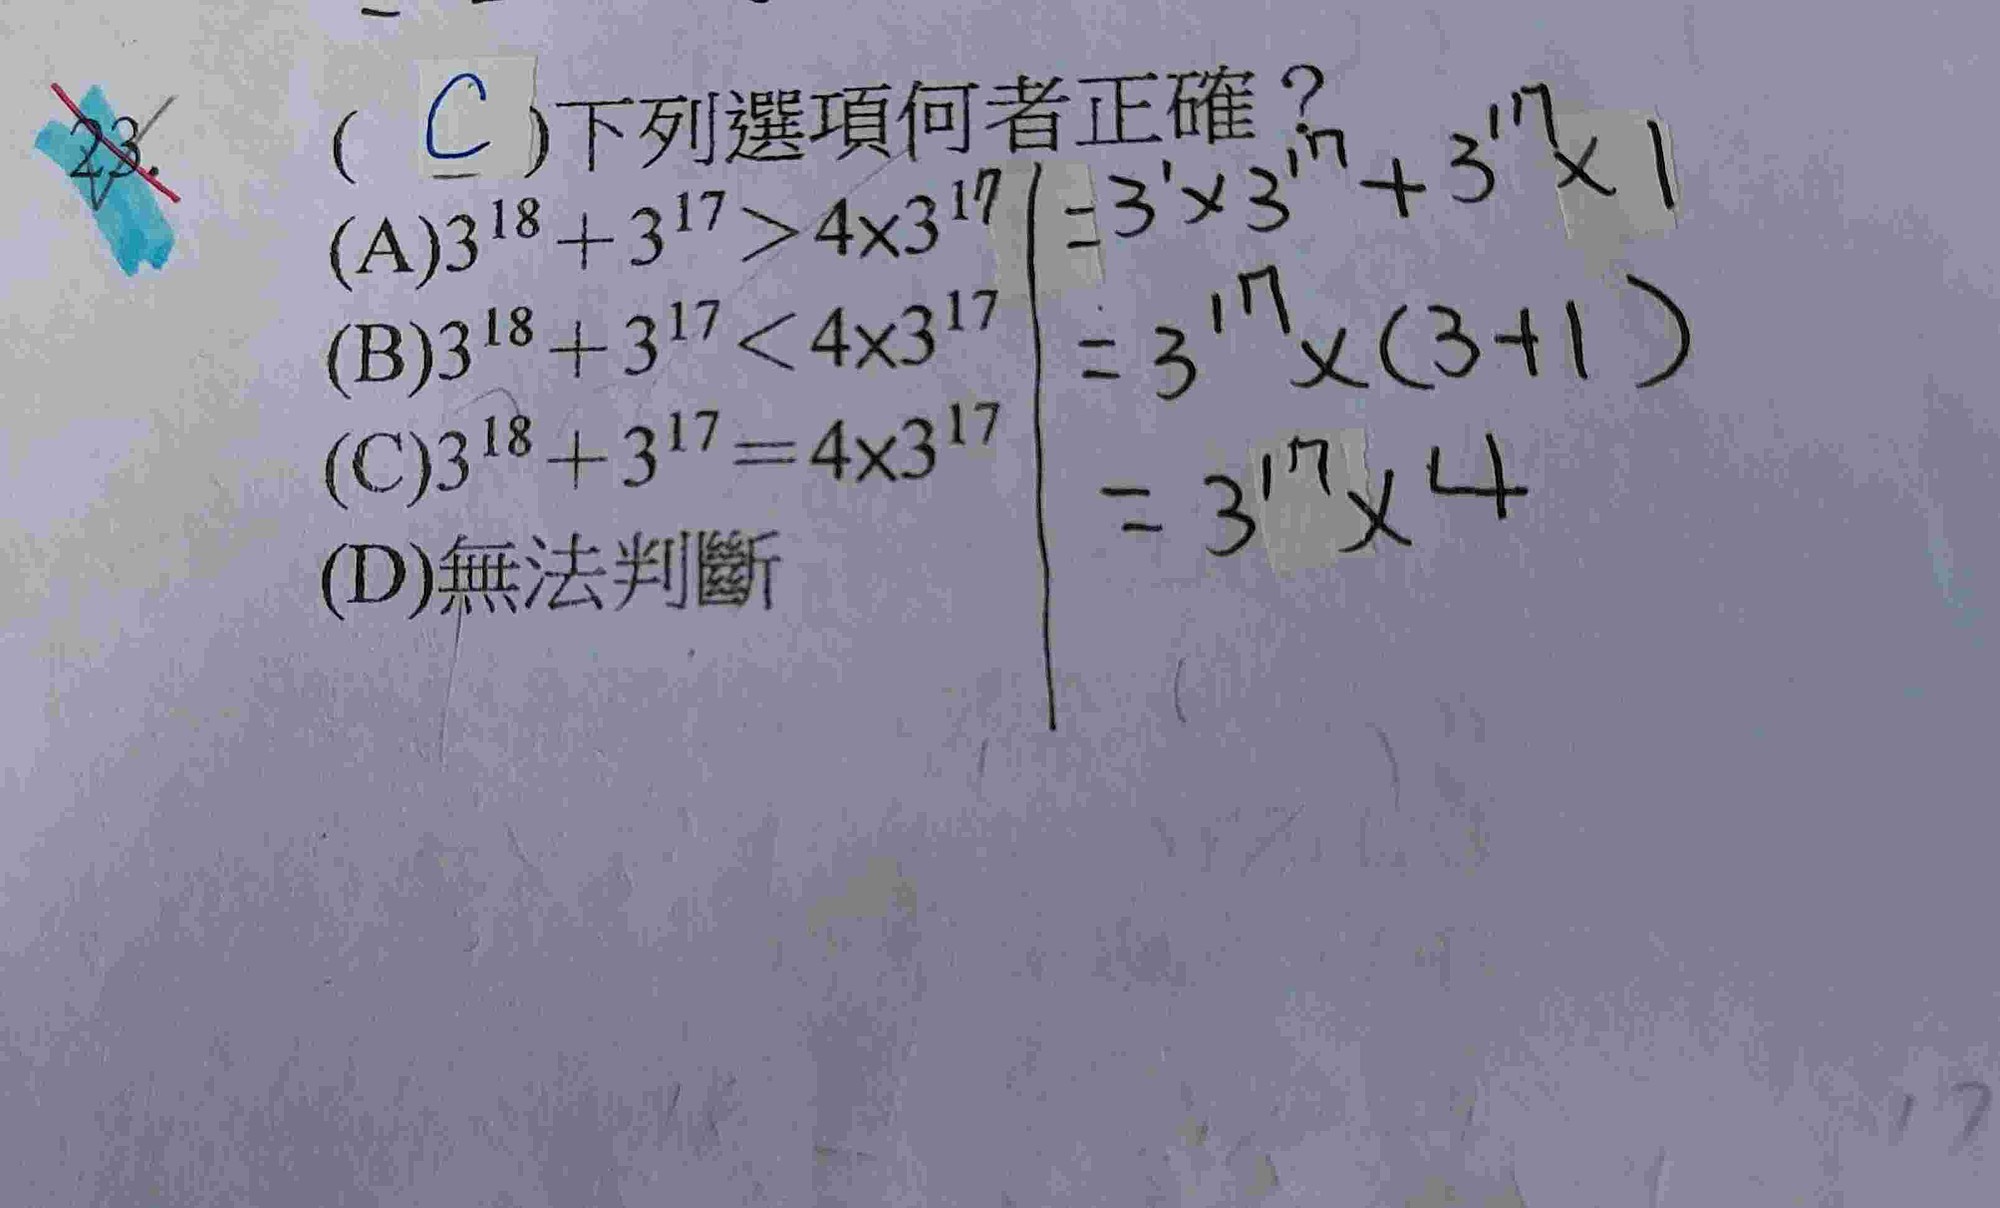 23. ( C )下列選項何者正確？
(A)3^18＋3^17＞4x3^17
(B)3^18＋3^17＜4x3^17
(C)3^18＋3^17＝4x3^17
(D)無法判斷
=3^1x3^17+3^17x1
=3^17x(3+1)
=3^17x4
17